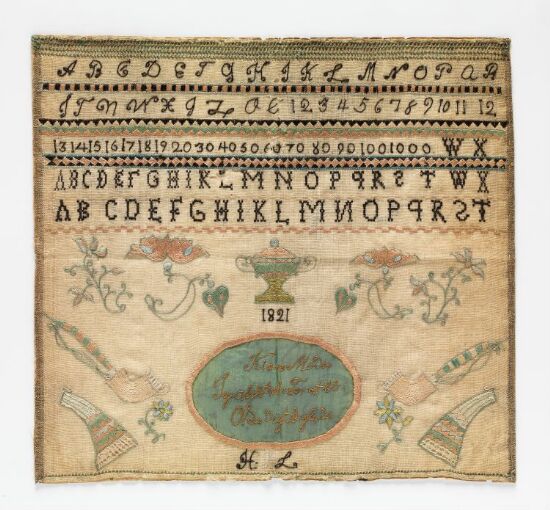 A B C D E F G H I K L M N O P Q R
S T N W X I Z O E 1 2 3 4 5 6 7 8 9 10 11 12
13 14 15 16 17 18 19 20 30 40 50 60 70 80 90 100 1000 W X
A B C D E F G H I K L M N O P P R S T W X
A B C D E F G H I K L M N O P P R S T
1821
H L